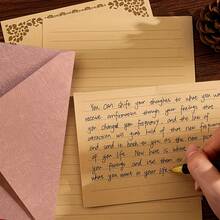 You can shift your thoughts to what you w
receive confirmation through your feelings that
you changed your frequency, and the law of
attraction will grab hold of that new
and send it back to you as the new pict
of your life. Now here is where you
your feelings and use them to
what you want in your life.